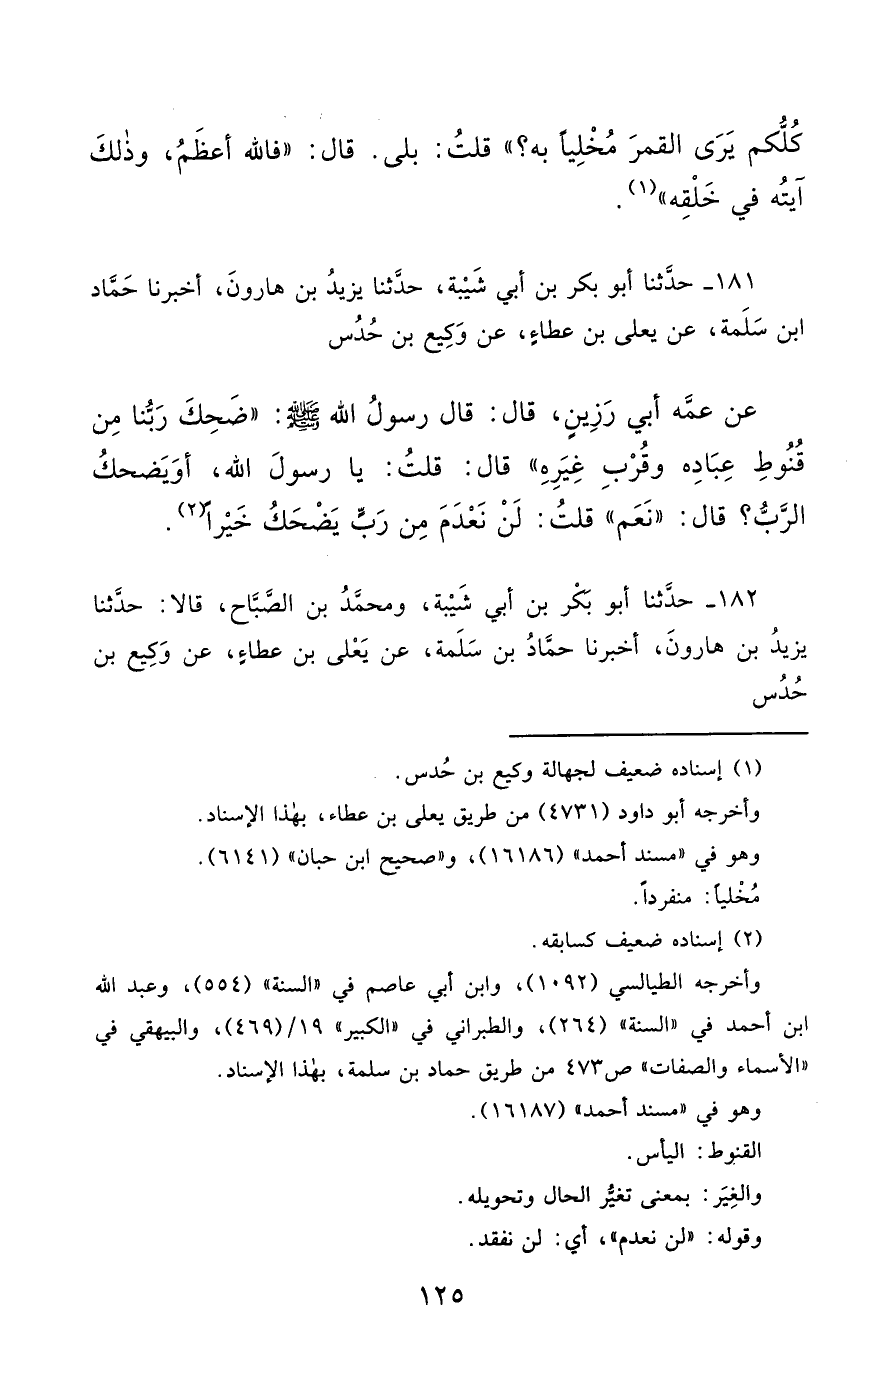 كُلُّكم يَرَى القمرَ مُخْلِياً به؟» قلتُ: بلى. قال: «فالله أعظَمُ، وذٰلكَ
آيتُه في خَلْقِه»(١).
١٨١ـ حدَّثنا أبو بكر بن أبي شَيْبة، حدَّثنا يزيدُ بن هارونَ، أخبرنا حَمَّاد
ابن سَلَمة، عن يعلى بن عطاءٍ، عن وَكِيع بن حُدُس
عن عمَّه أبي رَزِينٍ، قال: قال رسولُ الله ﷺ: «ضَحِكَ رَبُّنا مِن
قُنُوطِ عِبَادِه وقُرْبِ غِيَرِهِ» قال: قلتُ: يا رسولَ الله، أوَيَضحكُ
الرَّبُّ؟ قال: «نَعَم» قلتُ: لَنْ نَعْدَمَ مِن رَبٍّ يَضْحَكُ خَيْراً(٢).
١٨٢ـ حدَّثنا أبو بَكْر بن أبي شَيْبة، ومحمَّدُ بن الصَّبَّاح، قالا: حدَّثنا
يزيدُ بن هارونَ، أخبرنا حمَّادُ بن سَلَمة، عن يَعْلى بن عطاءٍ، عن وَكِيع بن
حُدُس
(١) إسناده ضعيف لجهالة وكيع بن حُدس.
وأخرجه أبو داود (٤٧٣١) من طريق يعلى بن عطاء، بهٰذا الإسناد.
وهو في «مسند أحمد» (١٦١٨٦)، و«صحيح ابن حبان» (٦١٤١).
مُخْلياً: منفرداً.
(٢) إسناده ضعيف كسابقه.
وأخرجه الطيالسي (١٠٩٢)، وابن أبي عاصم في «السنة» (٥٥٤)، وعبد الله
ابن أحمد في «السنة» (٢٦٤)، والطبراني في «الكبير» ١٩/(٤٦٩)، والبيهقي في
«الأسماء والصفات» ص٤٧٣ من طريق حماد بن سلمة، بهٰذا الإسناد.
وهو في «مسند أحمد» (١٦١٨٧).
القنوط: اليأس.
والغِيَر: بمعنى تغيُّر الحال وتحويله.
وقوله: «لن نعدم»، أي: لن نفقد.
١٢٥